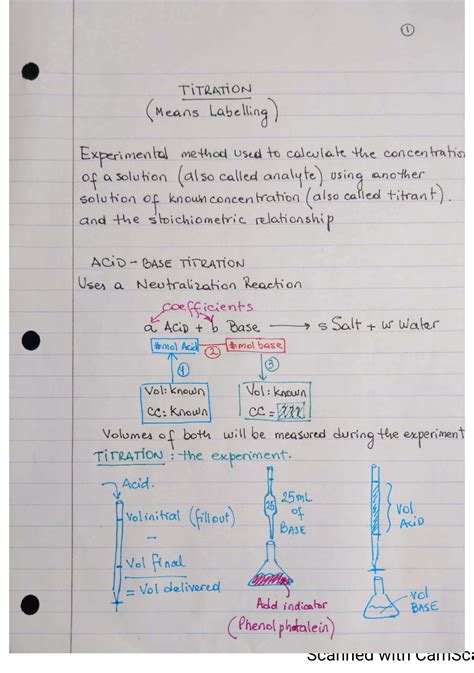 1
TITRATION
(Means Labelling)
Experimental method used to calculate the concentration
of a solution (also called analyte) using another
solution of known concentration (also called titrant).
and the stoichiometric relationship
ACID - BASE TITRATION
Uses a Neutralization Reaction
coefficients
a Acid + b Base ⟶ s Salt + w Water
#mol Acid 2 #mol base
1 3
Vol: known Vol: known
CC: known CC =
Volumes of both will be measured during the experiment
TITRATION: the experiment.
Acid.
Vol initial (fill out)
Vol final
= Vol delivered
25
25mL
of
BASE
Add indicator
(Phenolphtalein)
Vol
ACID
Vol
BASE
Scanned with CamSca